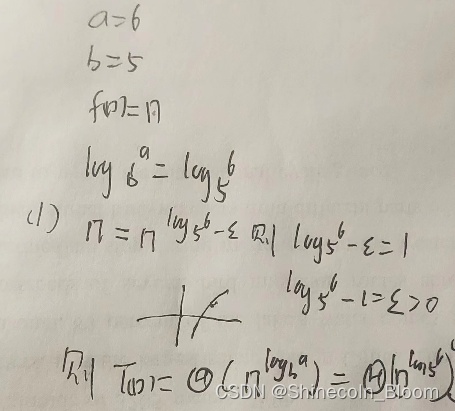 a=6
b=5
f(n)=n
log_b^a = log_5^6
(1) n = n^{log_5^6-ε} 则 log_5^6-ε=1
log_5^6-1=ε>0
则 T(n)= Θ(n^{log_b^a}) = Θ(n^{log_5^6})
CSDN @Shinecoln_Bloom